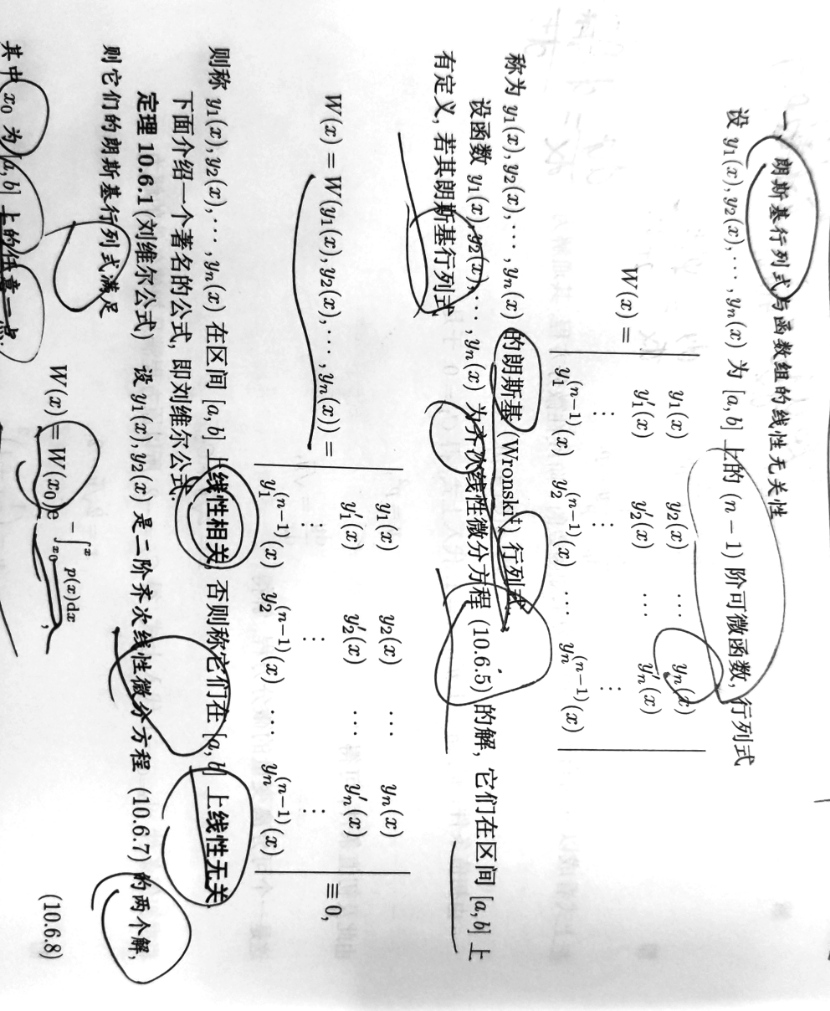 一 朗斯基行列式与函数组的线性无关性
设 y₁(x), y₂(x), ⋯, yₙ(x) 为 [a, b] 上的 (n − 1) 阶可微函数, 行列式
W(x) = | y₁(x) y₂(x) ⋯ yₙ(x) |
| y₁′(x) y₂′(x) ⋯ yₙ′(x) |
| ⋮ ⋮ ⋮ |
| y₁⁽ⁿ⁻¹⁾(x) y₂⁽ⁿ⁻¹⁾(x) ⋯ yₙ⁽ⁿ⁻¹⁾(x) |
称为 y₁(x), y₂(x), ⋯, yₙ(x) 的朗斯基 (Wronski) 行列式.
设函数 y₁(x), y₂(x), ⋯, yₙ(x) 为齐次线性微分方程 (10.6.5) 的解, 它们在区间 [a, b] 上
有定义, 若其朗斯基行列式
W(x) = W(y₁(x), y₂(x), ⋯, yₙ(x)) = | y₁(x) y₂(x) ⋯ yₙ(x) |
| y₁′(x) y₂′(x) ⋯ yₙ′(x) |
| ⋮ ⋮ ⋮ |
| y₁⁽ⁿ⁻¹⁾(x) y₂⁽ⁿ⁻¹⁾(x) ⋯ yₙ⁽ⁿ⁻¹⁾(x) | ≡ 0,
则称 y₁(x), y₂(x), ⋯, yₙ(x) 在区间 [a, b] 上线性相关, 否则称它们在 [a, b] 上线性无关.
下面介绍一个著名的公式, 即刘维尔公式.
定理 10.6.1 (刘维尔公式) 设 y₁(x), y₂(x) 是二阶齐次线性微分方程 (10.6.7) 的两个解,
则它们的朗斯基行列式满足
W(x) = W(x₀)e^{−∫_{x₀}^{x} p(x)dx}, (10.6.8)
其中 x₀ 为 [a, b] 上的任意一点.